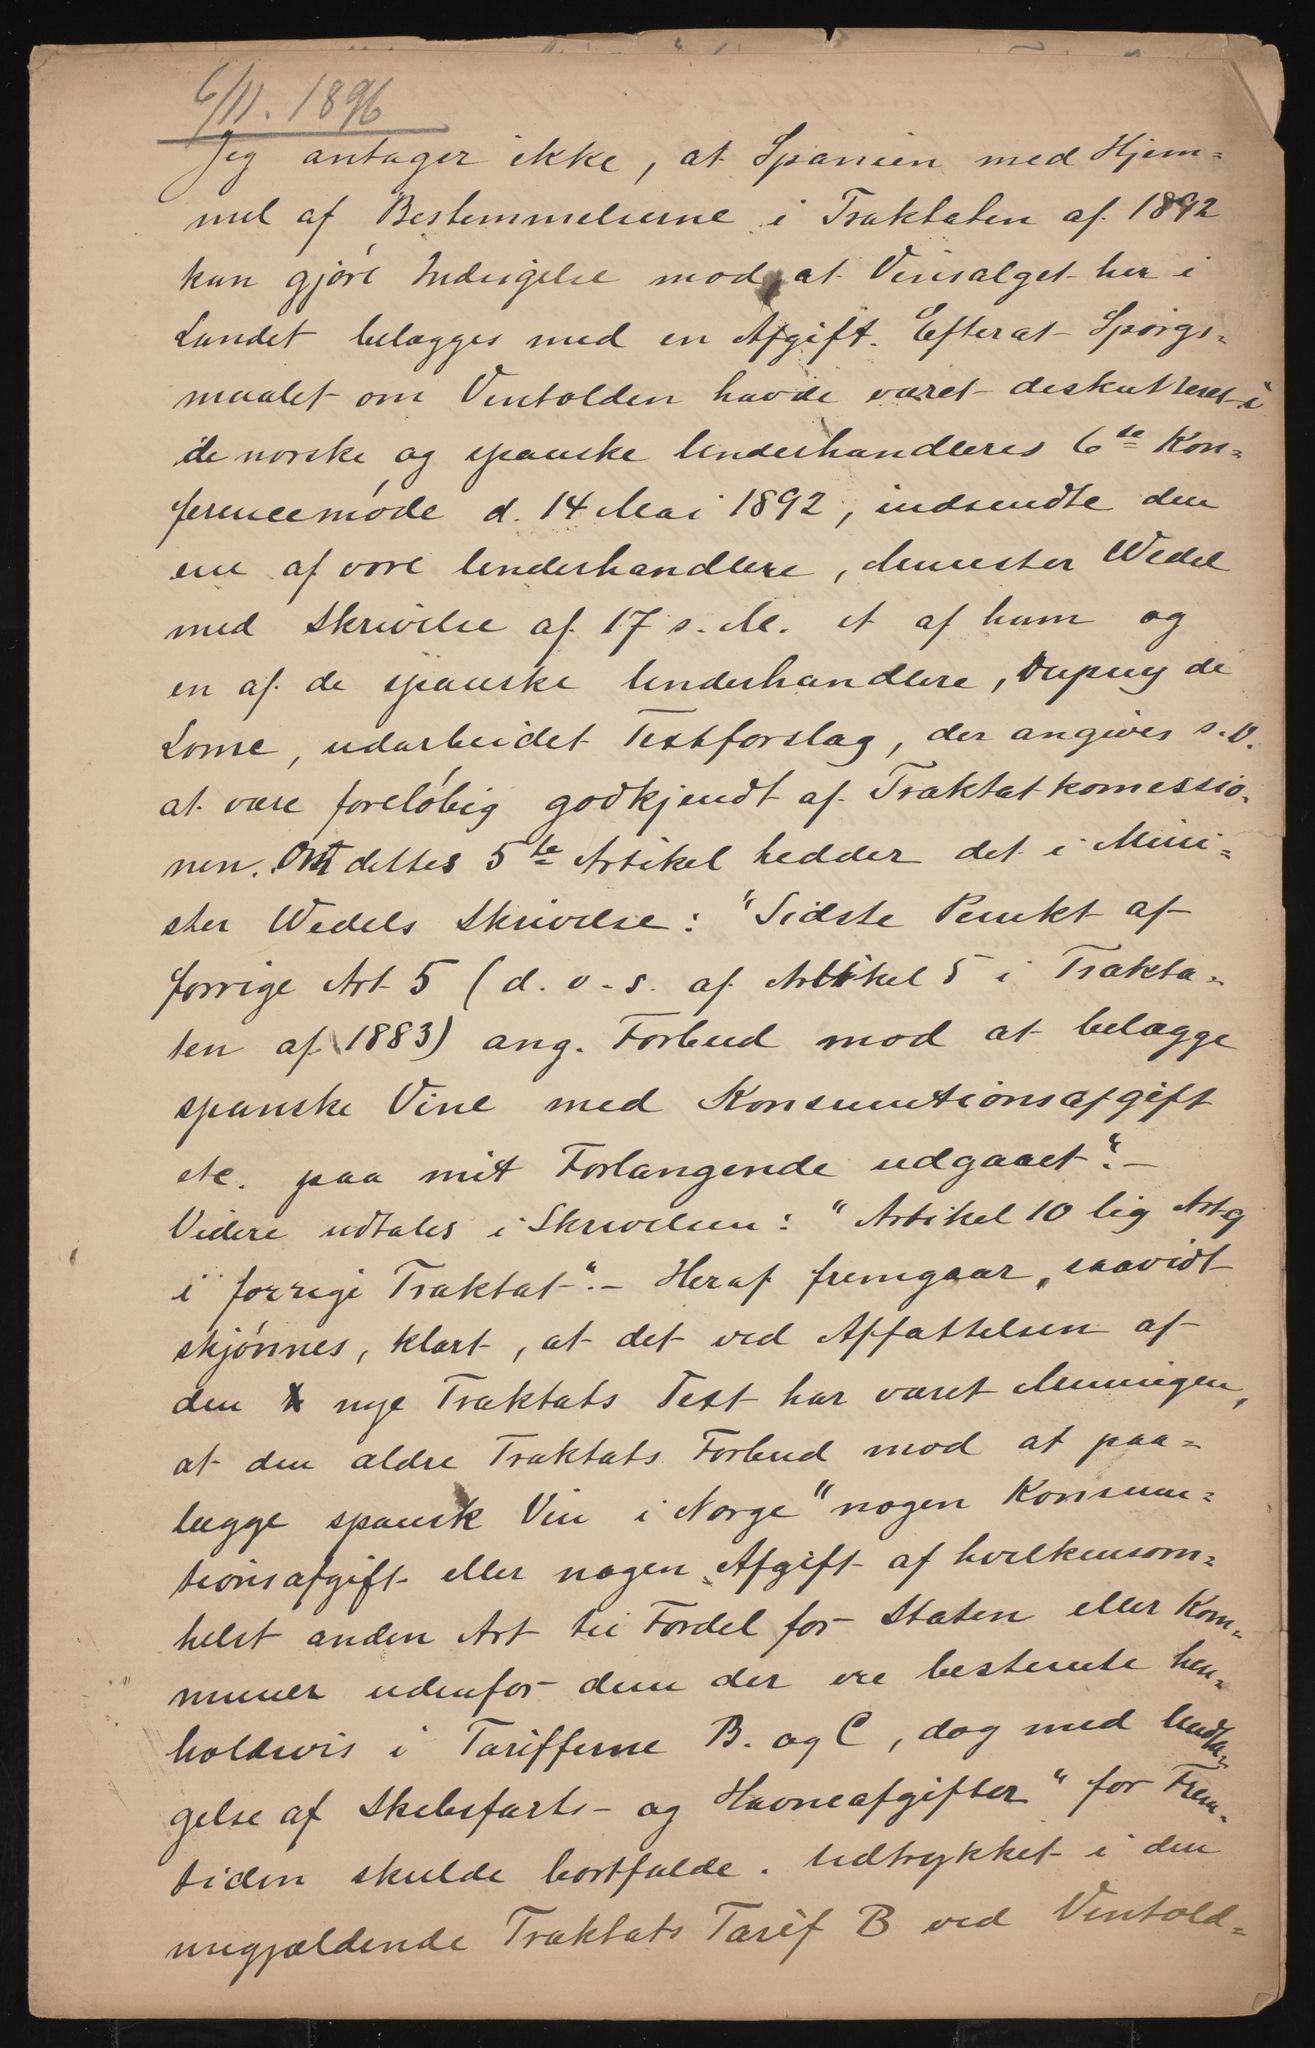 6/11. 1896
Jeg antager ikke, at Spanien med Hjem-
mel af Bestemmelserne i Traktaten af 1892
kan gjøre Indsigelse mod, at Vinsalget her i
Landet belægges med en Afgift. Efterat Spørgs-
maalet om Vintolden havde været diskutteret i
de norske og spanske Underhandleres 6te Kon-
ferencemøde d. 14 Mai 1892, indsendte den
ene af vore Underhandlere, Minister Wedel
med Skrivelse af 17 s. M. et af ham og
en af de spanske Underhandlere, Dupuy de
Lome, udarbeidet Textforslag, der angives s. D.
at være foreløbig godkjendt af Traktatkomissio-
nen. Om dettes 5te Artikel hedder det i Mini-
ster Wedels Skrivelse: "Sidste Punkt af
forrige Art 5 (d. v. s. af Artikel 5 i Trakta-
ten af 1883) ang. Forbud mod at belægge
spanske Vine med Konsumtionsafgift
etc. paa mit Forlangende udgaaet". -
Videre udtales i Skrivelsen: "Artikel 10 lig Art 9
i forrige Traktat". - Heraf fremgaar, saavidt
skjønnes, klart, at det ved Affattelsen af
den nye Traktats Text har været Meningen,
at den ældre Traktats Forbud mod at paa-
lægge spansk Vin i Norge "nogen Konsum-
tionsafgift eller nogen Afgift af hvilkensom-
helst anden Art til Fordel for Staten eller Kom-
muner udenfor dem der ere bestemte hen-
holdsvis i Tarifferne B. og C, dog med Undta-
gelse af Skibsfarts- og Havneafgifter" for Frem-
tiden skulde bortfalde. Udtrykket i den
nugjældende Traktats Tarif B ved Vintold-